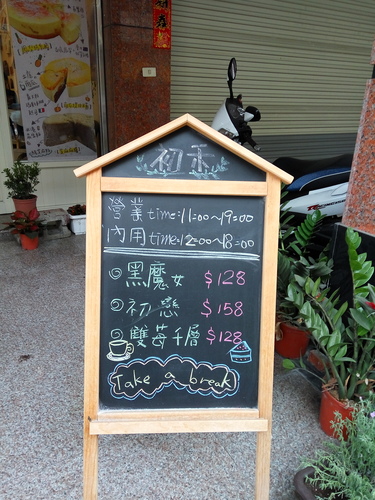 初禾
營業time:11:00~19:00
內用time:12:00~18:00
黑魔女 $128
初戀 $158
雙莓千層 $128
Take a break